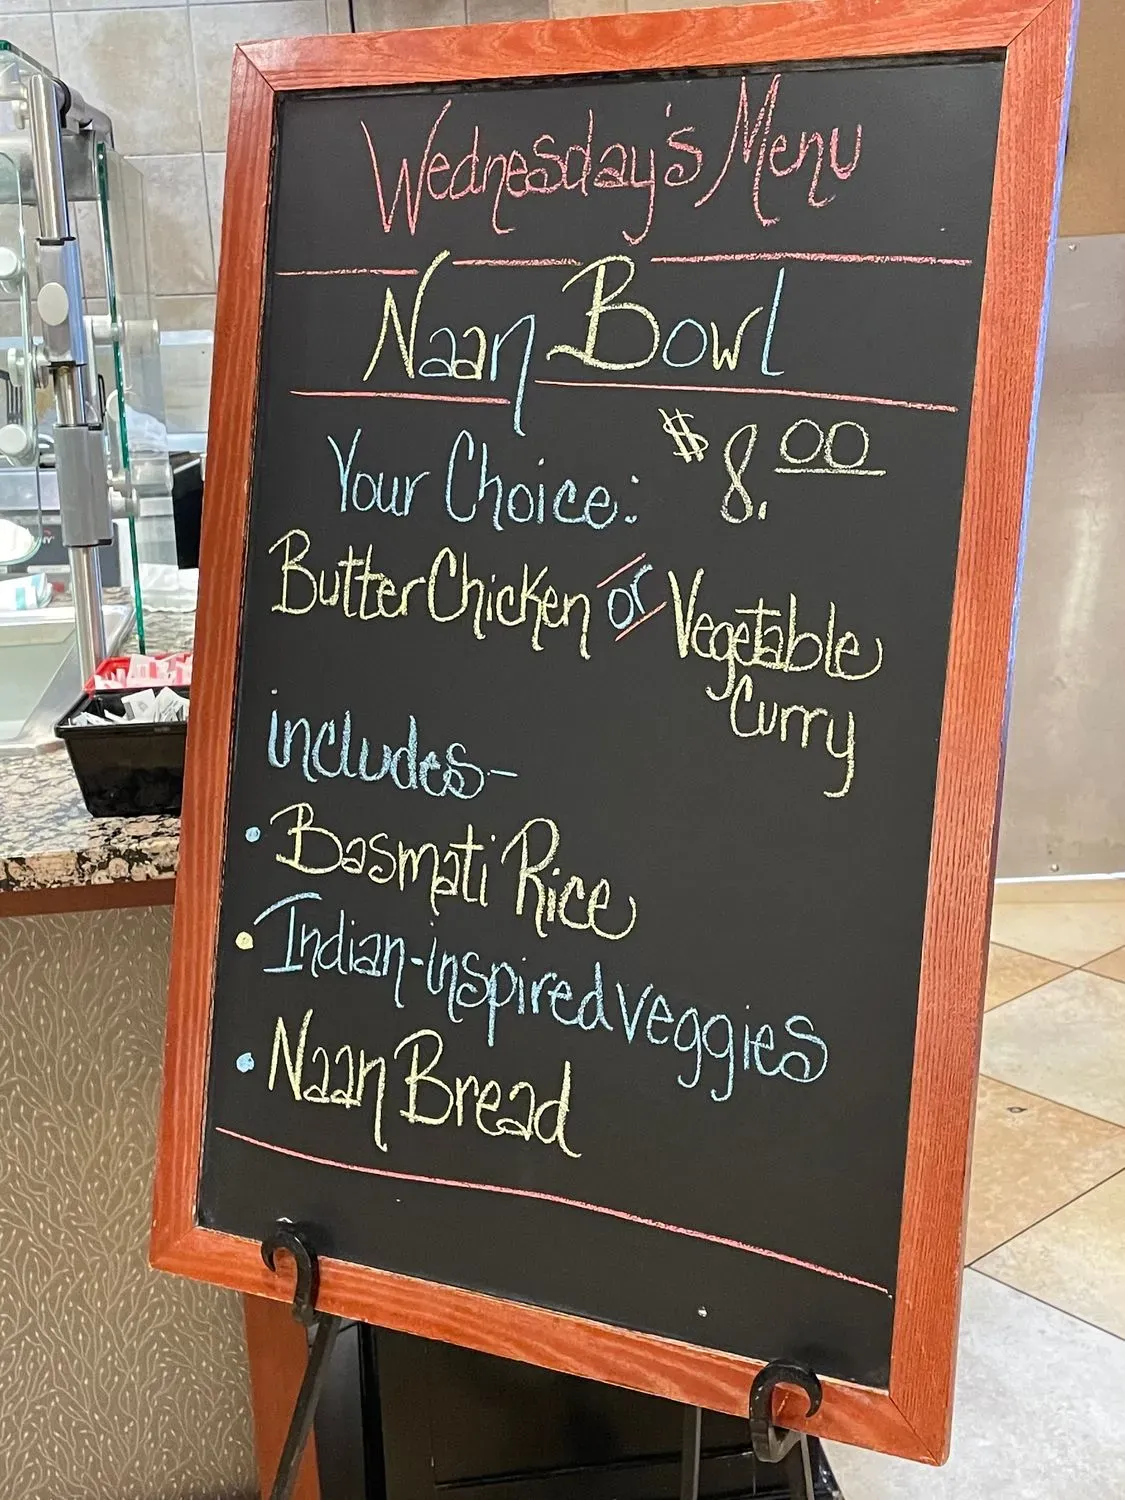 Wednesday's Menu
Naan Bowl
$8.00
Your Choice:
Butter Chicken or Vegetable
Curry
includes-
• Basmati Rice
• Indian-inspired veggies
• Naan Bread